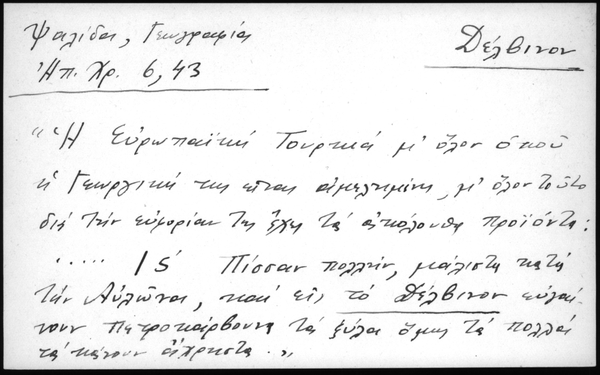 Ψαλίδα, Γεωγραφία
Ἠπ. Χρ. 6, 43
Δέλβινον
"Ἡ Εὐρωπαϊκή Τουρκιά μ' ὅλον ὁποῦ
ἡ Γεωργική της εἶναι ἀμελημένη, μ' ὅλον τοῦτο
διά τήν εὐμορίαν της ἔχει τά ἀκόλουθα προϊόντα:
..... Ιϛ´ Πίσσαν πολλήν, μάλιστα κατά
τήν Αὐλῶνα, καί εἰς τό Δέλβινον εὐγαί-
νουν πετροκάρβουνα τά ξύλα ὅμως τά πολλά
τά κάνουν ἄχρηστα."